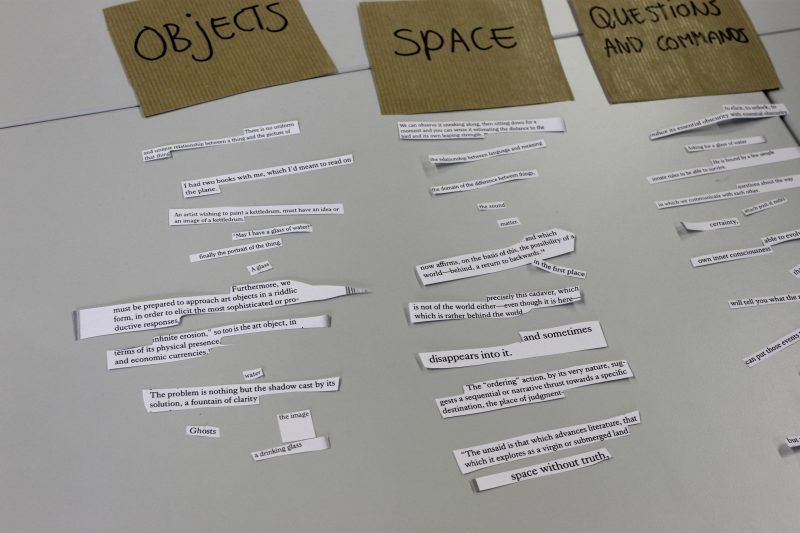 OBJECTS
There is no uniform
and unique relationship between a thing and the picture of
that thing.
I had two books with me, which I'd meant to read on
the plane.
An artist wishing to paint a kettledrum, must have an idea or
an image of a kettledrum.
"May I have a glass of water?"
finally the portrait of the thing.
A glass
Furthermore, we
must be prepared to approach art objects in a riddlic
form, in order to elicit the most sophisticated or pro-
ductive responses,
infinite erosion," so too is the art object, in
terms of its physical presence,
and economic currencies,
water
The problem is nothing but the shadow cast by its
solution, a fountain of clarity
Ghosts
the image
a drinking glass
SPACE
We can observe it sneaking along, then sitting down for a
moment and you can sense it estimating the distance to the
bird and its own leaping strength.
the relationship between language and meaning
the domain of the difference between things,
the sound
matter.
and which
now affirms, on the basis of this, the possibility of a
world—behind, a return to backwards."
in the first place
precisely this cadaver, which
is not of the world either—even though it is here—
which is rather behind the world
and sometimes
disappears into it.
The "ordering" action, by its very nature, sug-
gests a sequential or narrative thrust towards a specific
destination, the place of judgment-
"The unsaid is that which advances literature, that
which it explores as a virgin or submerged land
space without truth,
QUESTIONS
AND COMMANDS
to elicit, to unlock, to
its essential obscurity with essential obscurity
Asking for a glass of water
He is bound by a few simple
innate rules to be able to survive.
questions about the way
in which we communicate with each other.
certainty,
able to
own inner consciousness
will tell you what the
can put those events
but